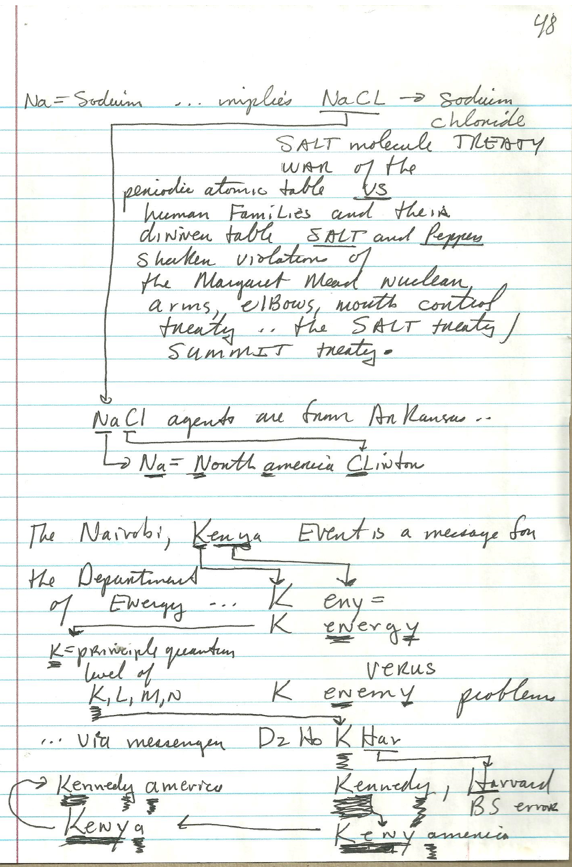 48
Na = Sodium ... implies NaCL → sodium
chloride
SALT molecule TREATY
WAR of the
periodic atomic table VS
human Families and their
dinner table SALT and Pepper
shaker violations of
the Margaret Mead nuclear
arms, elBows, mouth control
treaty .. the SALT treaty /
SUMMIT treaty.
NaCl agents are from Arkansas ..
→ Na = North america CLinton
The Nairobi, Kenya Event is a message for
the Department
of Energy ... K eny =
K energy
K = principle quantum
level of
K, L, M, N K enemy problems
VERUS
... via messenger Dz Ho K Har
Kennedy america Kennedy, Harvard
BS error
Kenya ← Keny america